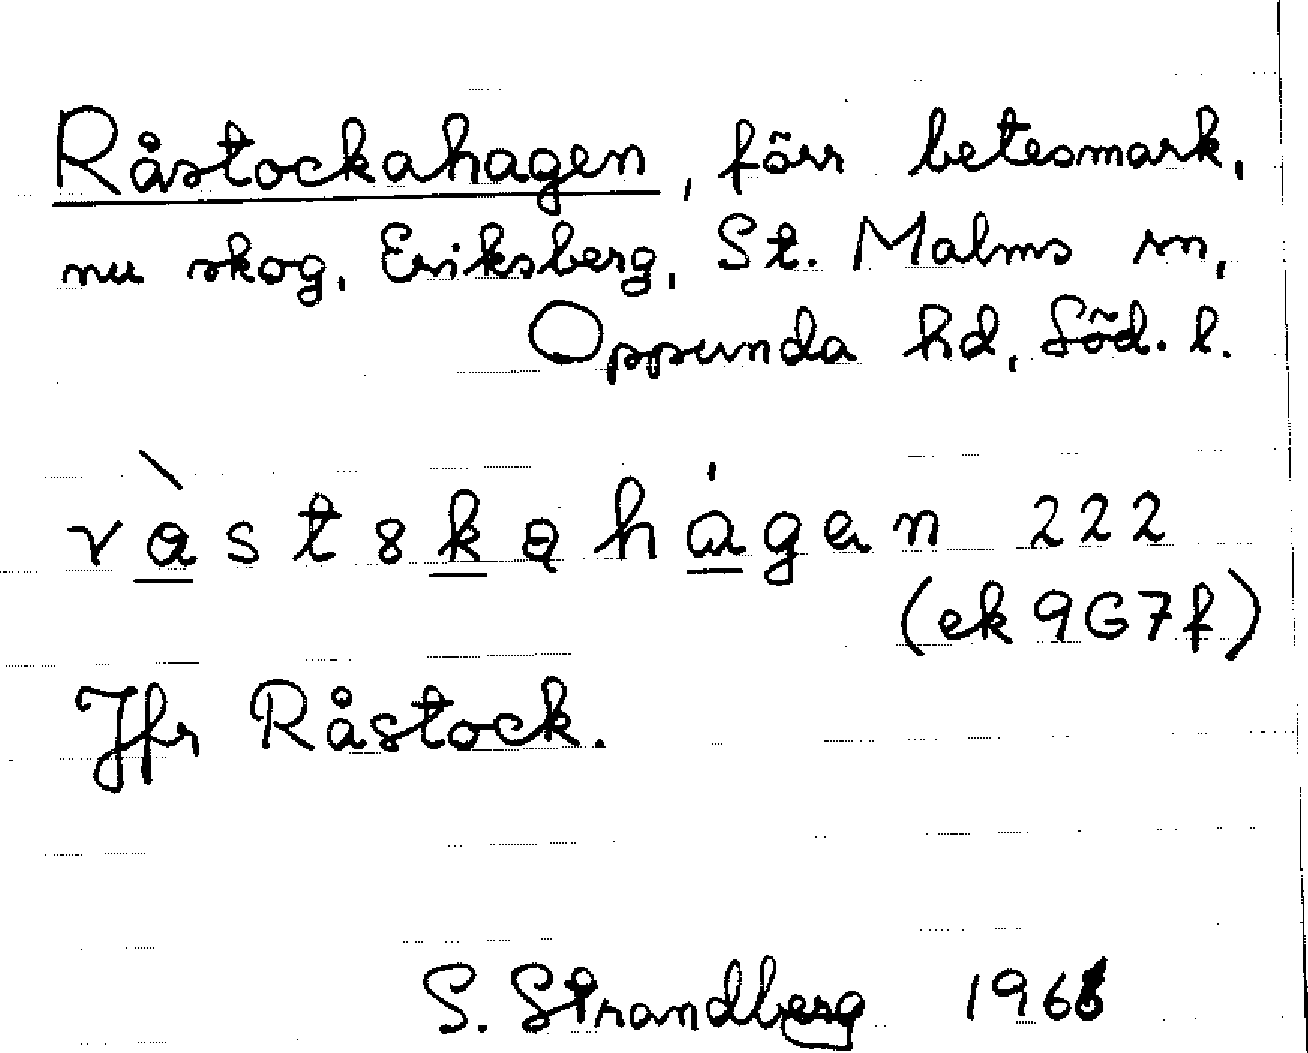 Råstockahagen, förr betesmark,
nu skog, Eriksberg, St. Malms sn,
Oppunda hd, Söd. l.
222
(ek 9G7f)
Jfr Råstock.
S. Strandberg